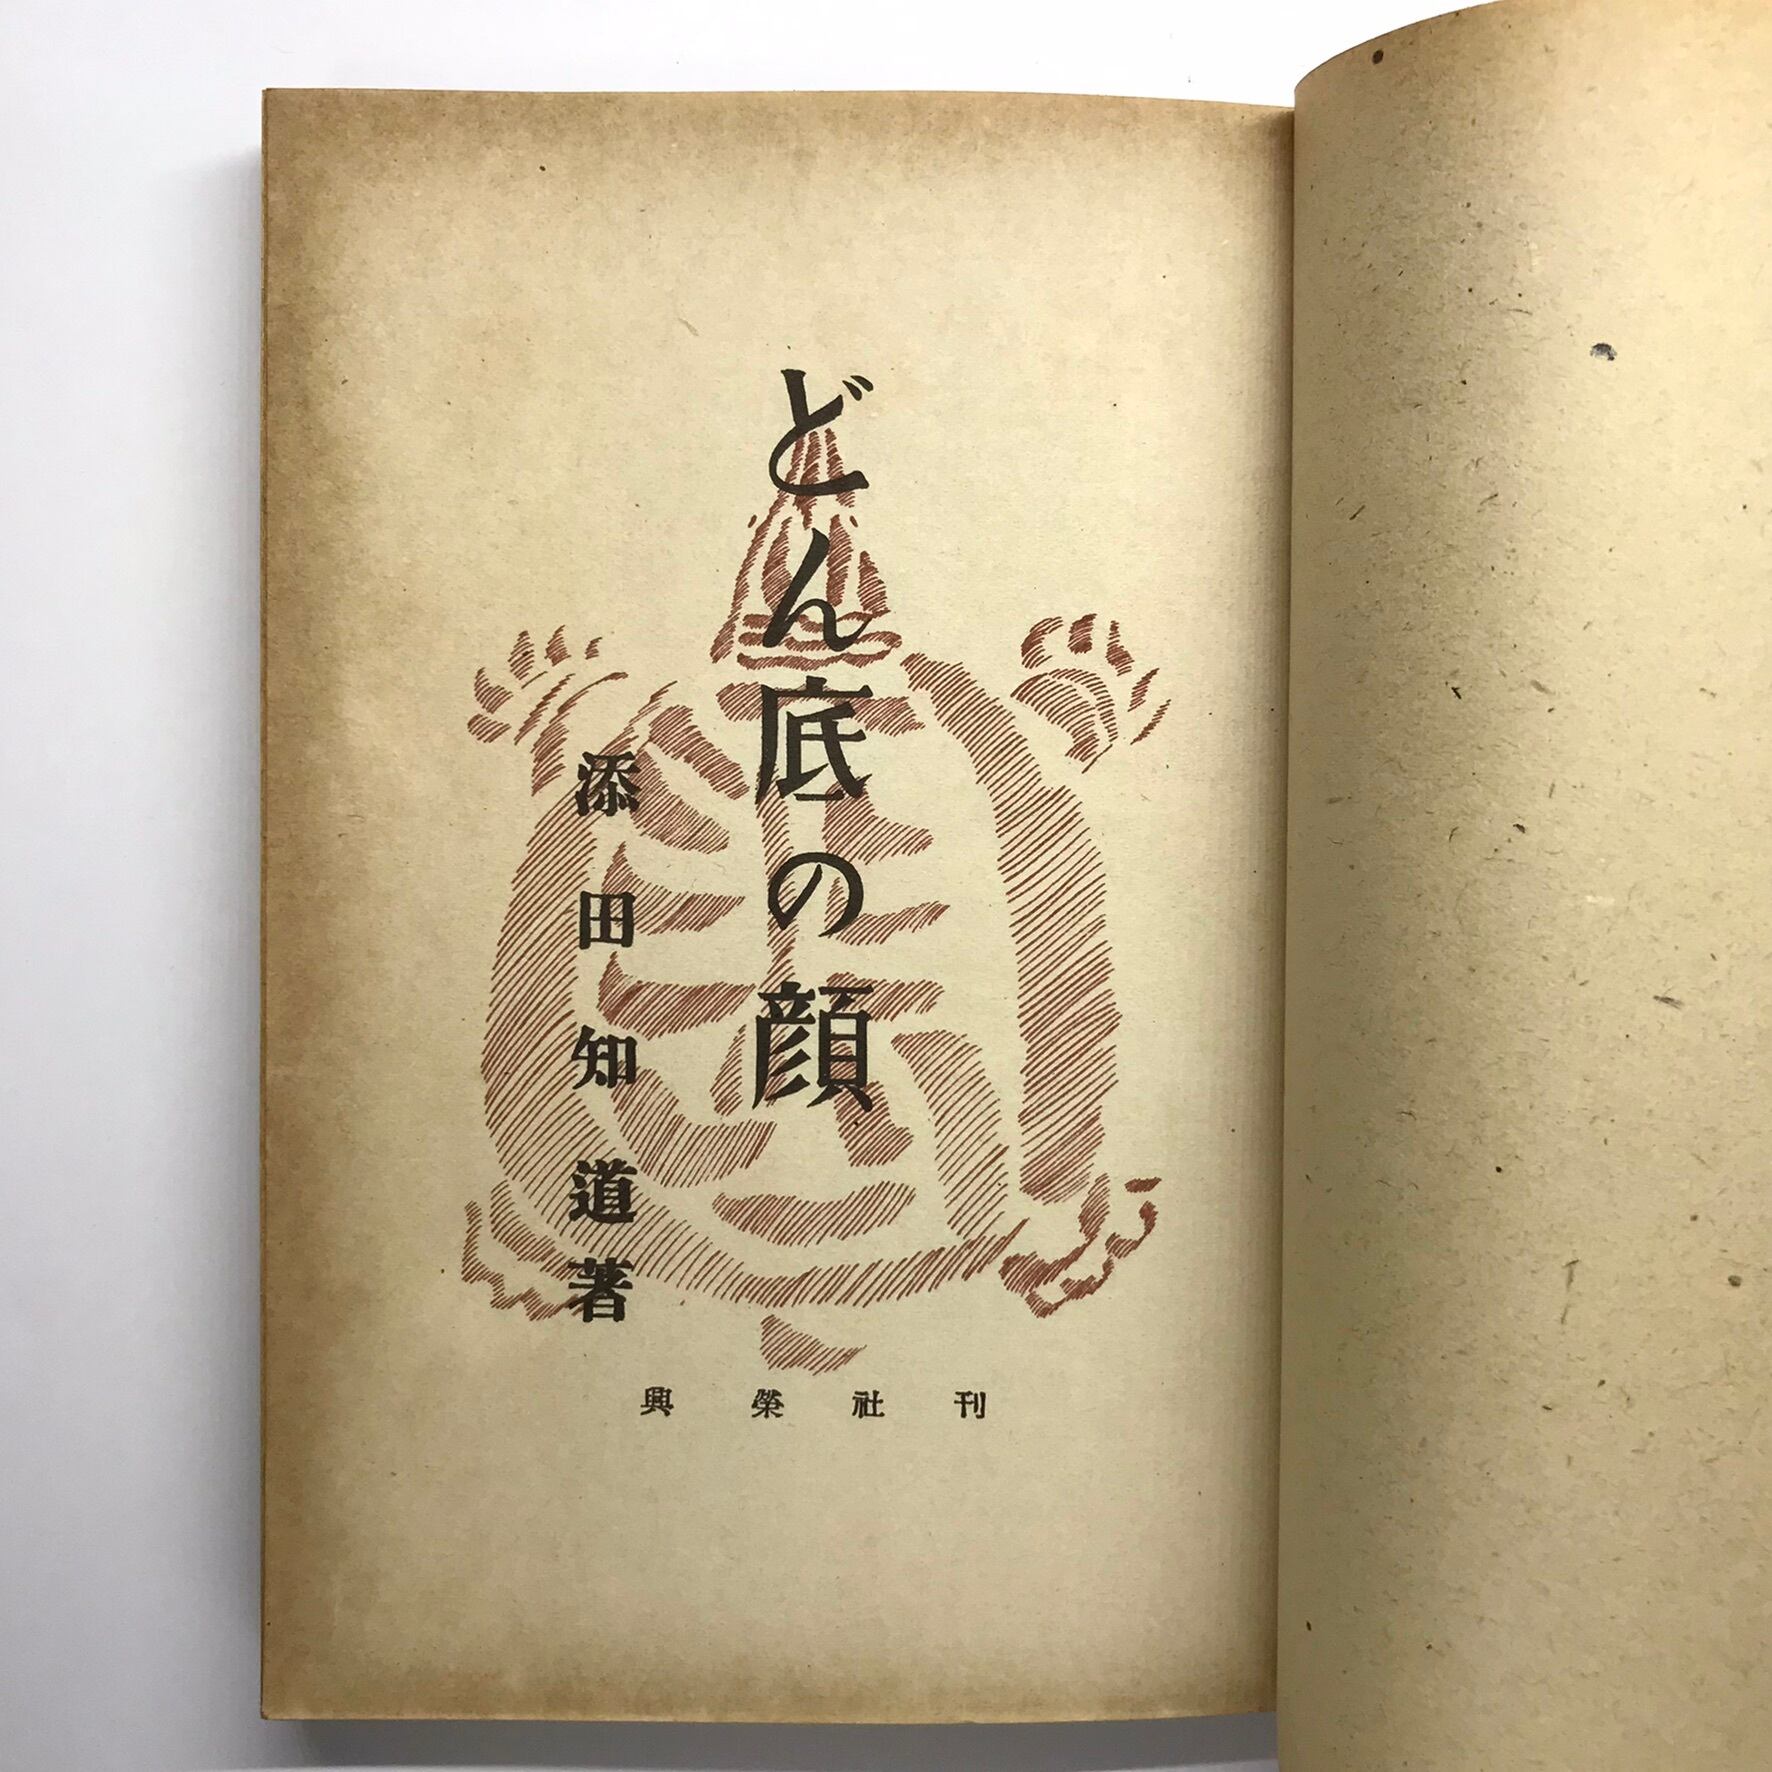 どん底の顔
添田知道著
興榮社刊